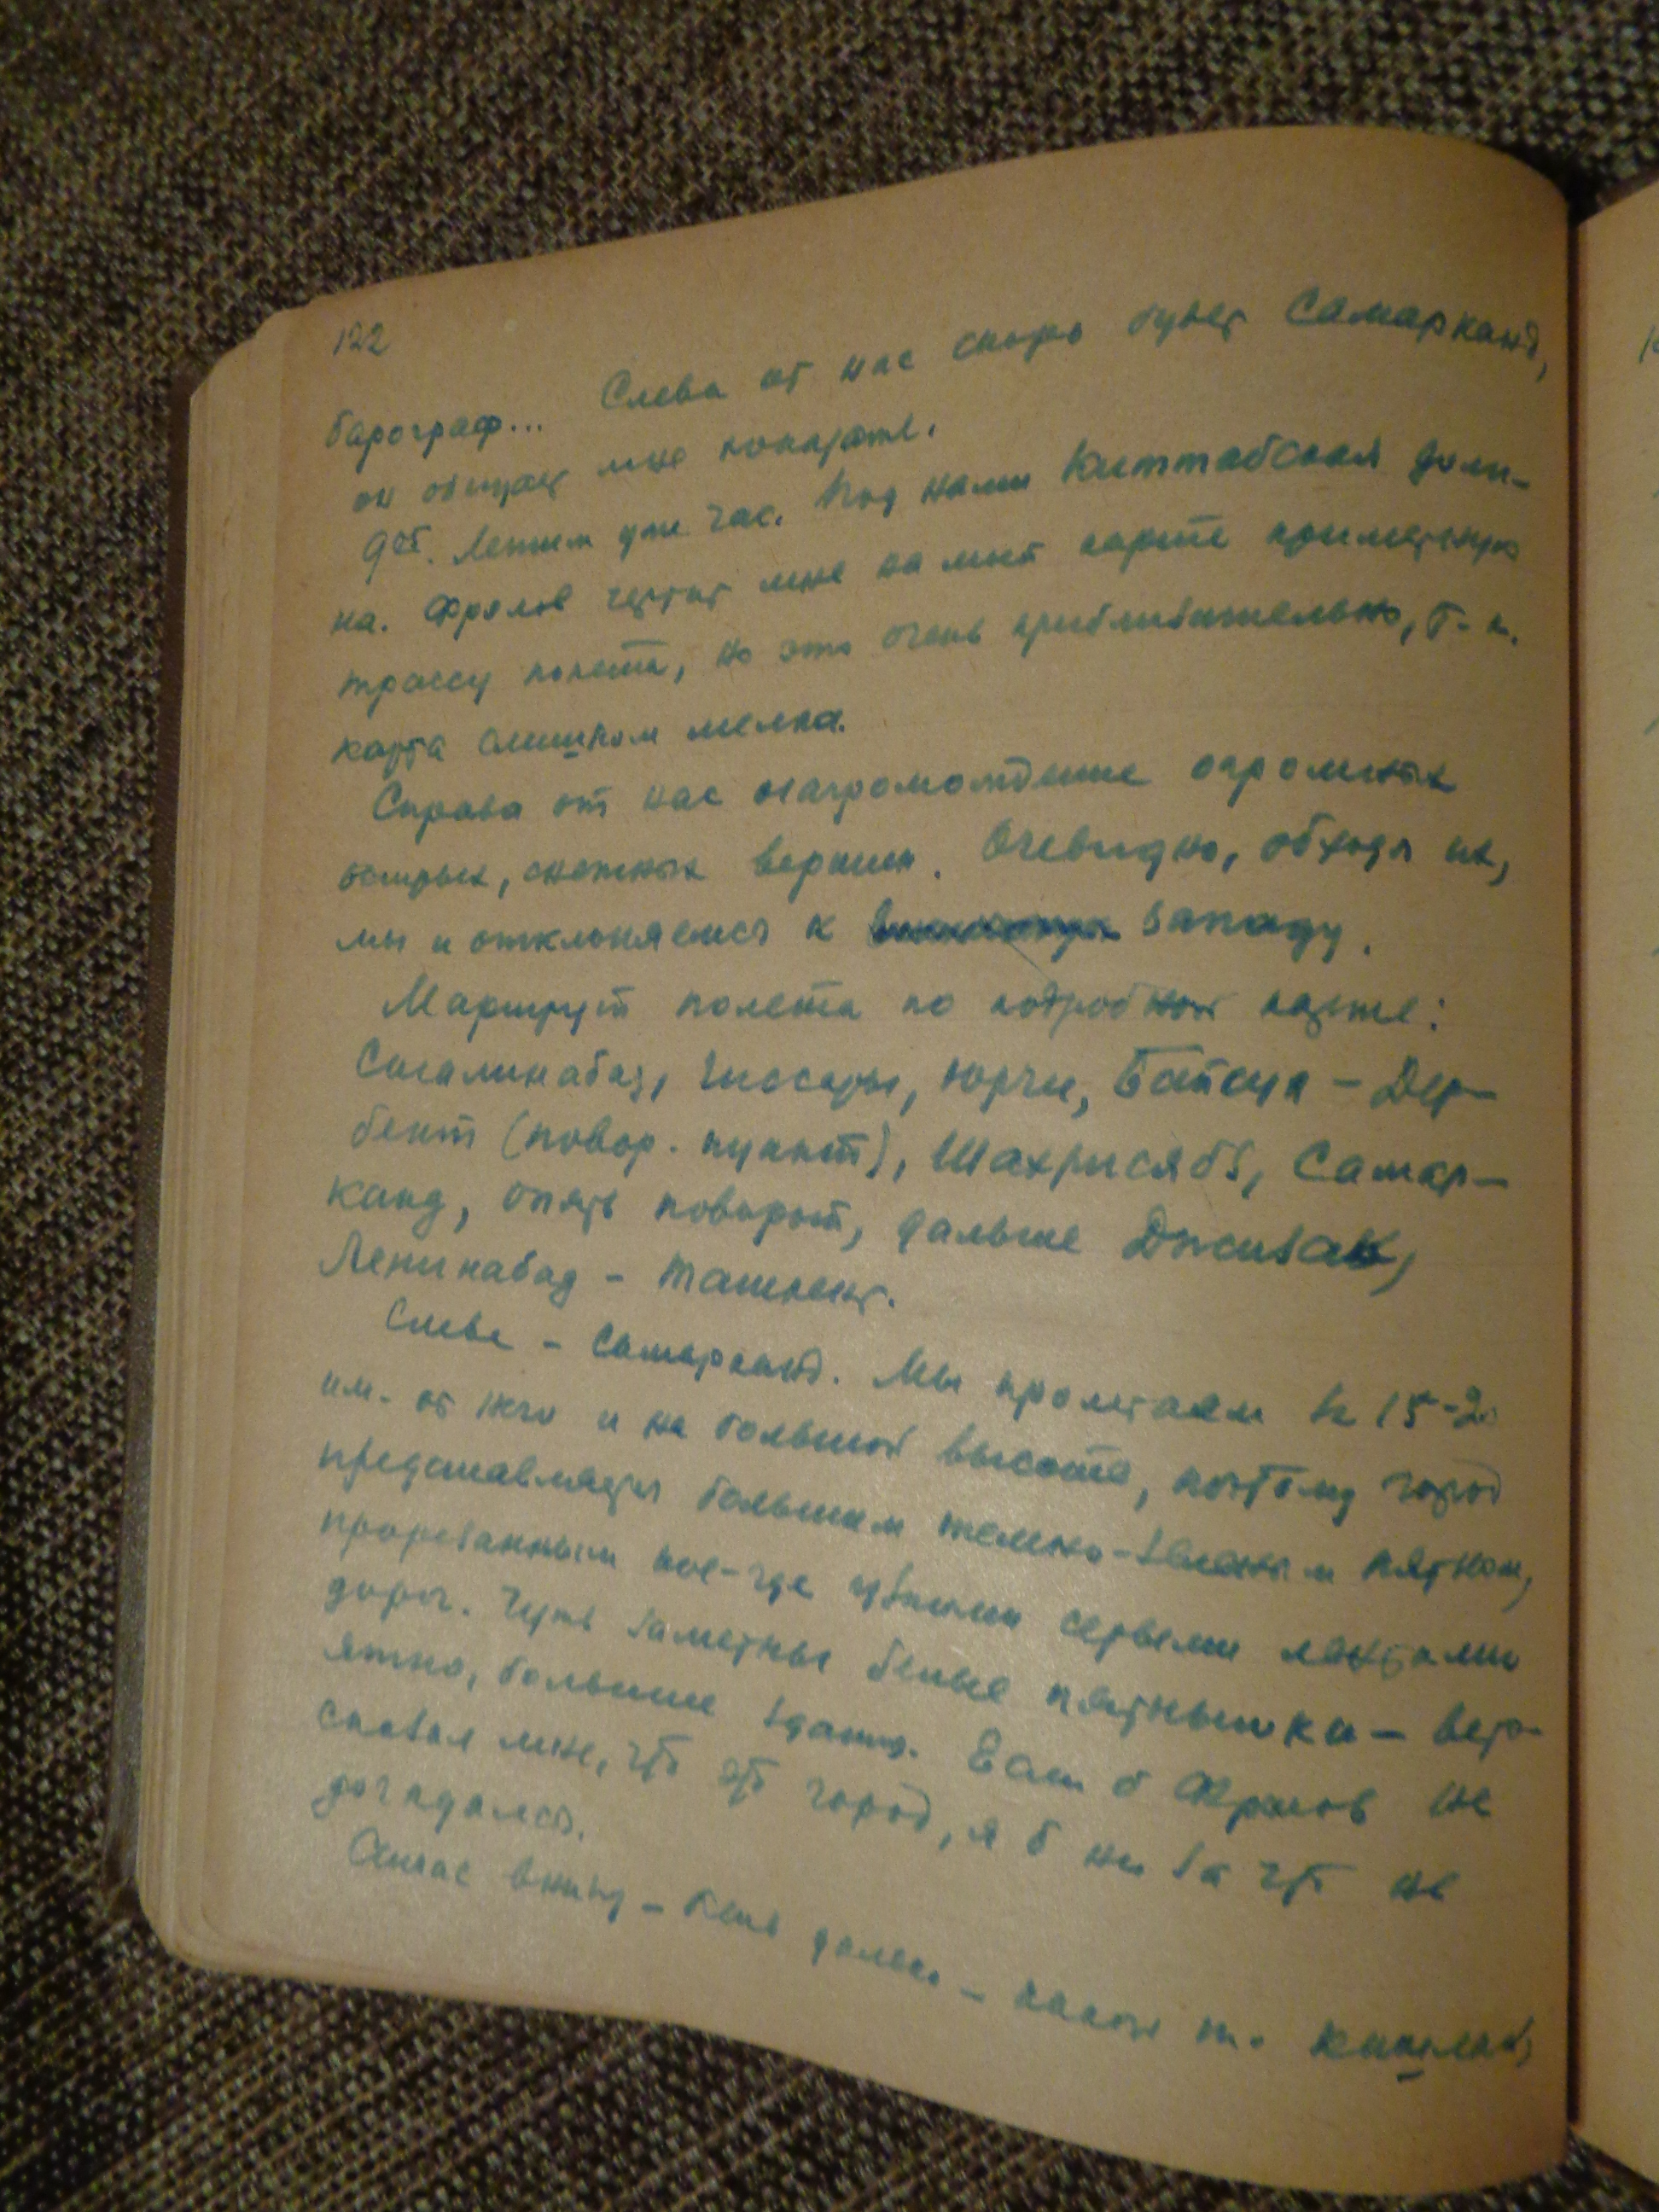 122
барограф... Слева от нас скоро будет Самарканд,
он обещает мне показать.
9 05. Летим уже час. Под нами Киттабская доли-
на. Фролов чертит мне на моей карте примерную
трассу полета, но это очень приблизительно, т-к.
карта слишком мелка.
Справа от нас нагромождение огромных
острых, снежных вершин. Очевидно, обходя их,
мы и отклоняемся к западу.
Маршрут полета по подробной карте:
Сталинабад, Гиссары, Юрчи, Байсун - Дер-
бент (повор. пункт), Шахрисябз, Самар-
канд, опять поворот, дальше Джизак,
Ленинабад - Ташкент.
Слева - Самарканд. Мы пролетаем в 15-20
км. от него и на большой высоте, поэтому город
представляется большим темно-зеленым пятном,
прорезанным кое-где узкими серыми лентами
дорог. Чуть заметные белые пятнышки - веро-
ятно, большие здания. Если б Фролов не
сказал мне, что это город, я б ни за что не
догадался.
Сейчас внизу - далеко - какой-то кишлак,